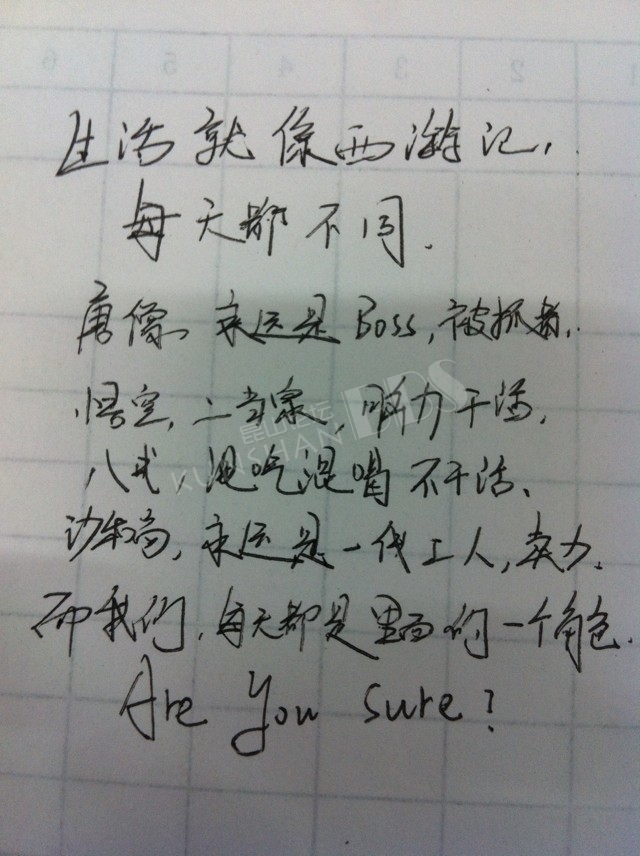 生活就像西游记,
每天都不同.
唐僧 永远是 Boss, 被抓者,
悟空, 二当家, 暴力干活,
八戒, 混吃混喝 不干活、
沙和尚, 永远是一线工人, 卖力.
而我们, 每天都是里面的一个角色.
Are You sure?
昆山论坛
KUNSHAN BBS
6 5 4 3 2 1